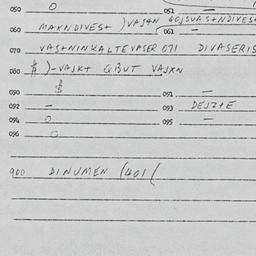 050 0 052 —
060 MAXNDIVES+ )VAS+N GOJSVAS+NDIVES+
063 —
070 VAS+NINXALTEVASER 071 DIVASERIS
080 $ )-VAJX+ &BUT VAJXN
090 $ 091 —
092 — 093 DEJZ+E
094 0 095 —
096 0
900 DINUMEN (401(